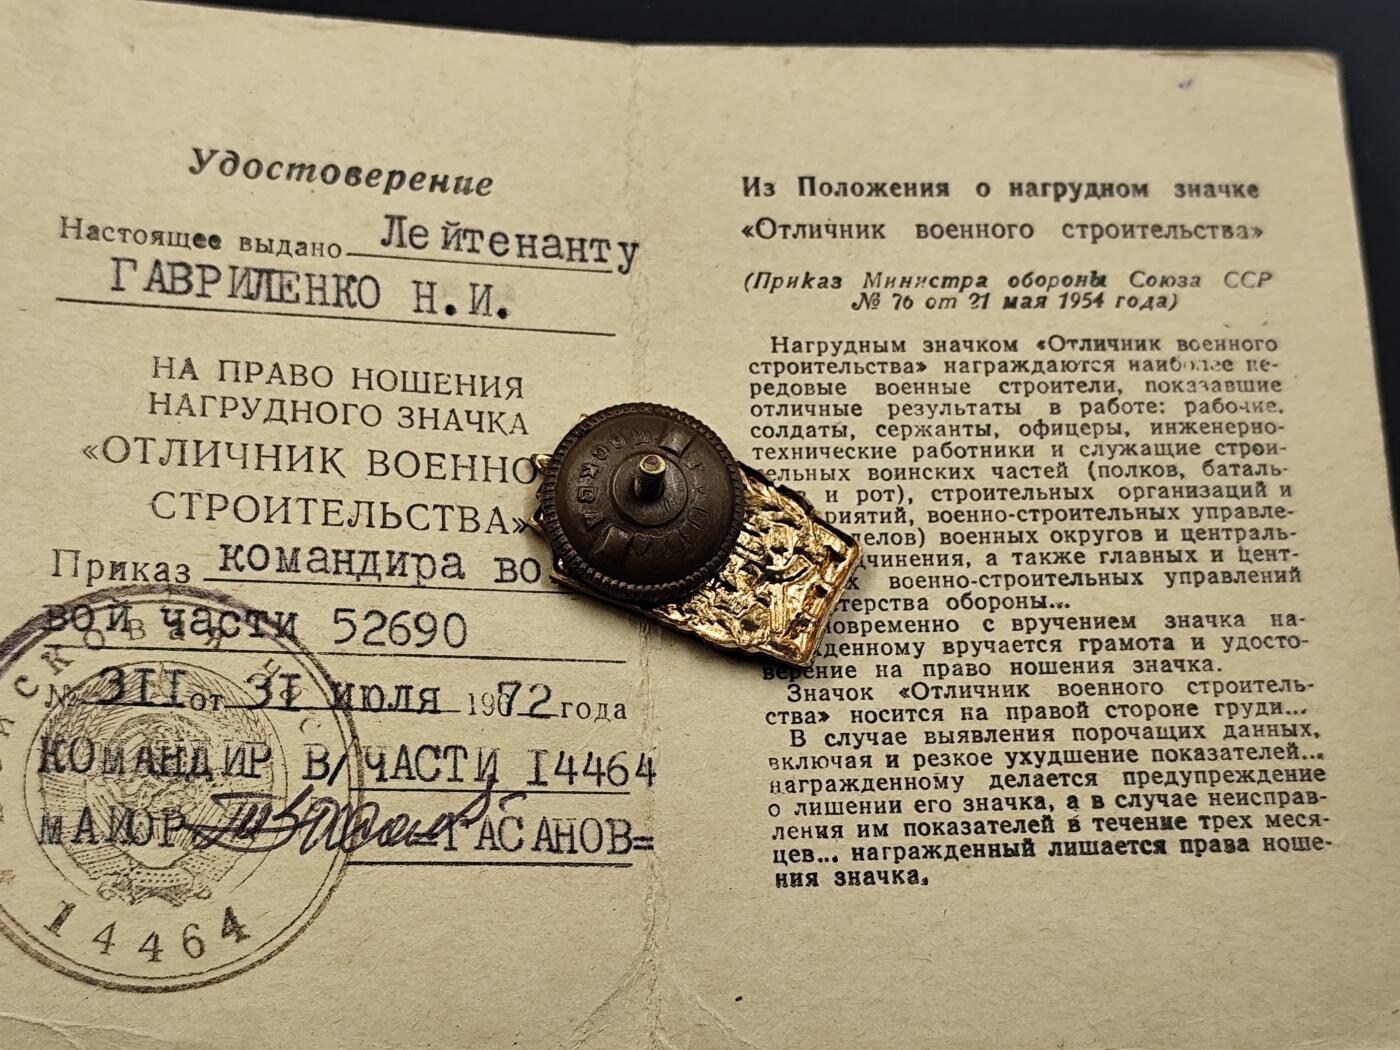 Удостоверение
Настоящее выдано Лейтенанту
ГАВРИЛЕНКО Н.И.
НА ПРАВО НОШЕНИЯ
НАГРУДНОГО ЗНАЧКА
«ОТЛИЧНИК ВОЕННО
СТРОИТЕЛЬСТВА»
Приказ командира во
вой части 52690
№ 3II от 3I июля 1972 года
КОМАНДИР В/ЧАСТИ I4464
МАЙОР ГАСАНОВ=
14464
Из Положения о нагрудном значке
«Отличник военного строительства»
(Приказ Министра обороны Союза ССР
№ 76 от 21 мая 1954 года)
Нагрудным значком «Отличник военного
строительства» награждаются наиболее пе-
редовые военные строители, показавшие
отличные результаты в работе: рабочие,
солдаты, сержанты, офицеры, инженерно-
технические работники и служащие строи-
ельных воинских частей (полков, баталь-
и рот), строительных организаций и
риятий, военно-строительных управле-
делов) военных округов и централь-
дчинения, а также главных и цент-
х военно-строительных управлений
терства обороны...
новременно с вручением значка на-
жденному вручается грамота и удосто-
верение на право ношения значка.
Значок «Отличник военного строитель-
ства» носится на правой стороне груди...
В случае выявления порочащих данных,
включая и резкое ухудшение показателей...
награжденному делается предупреждение
о лишении его значка, а в случае неисправ-
ления им показателей в течение трех меся-
цев... награжденный лишается права ноше-
ния значка.